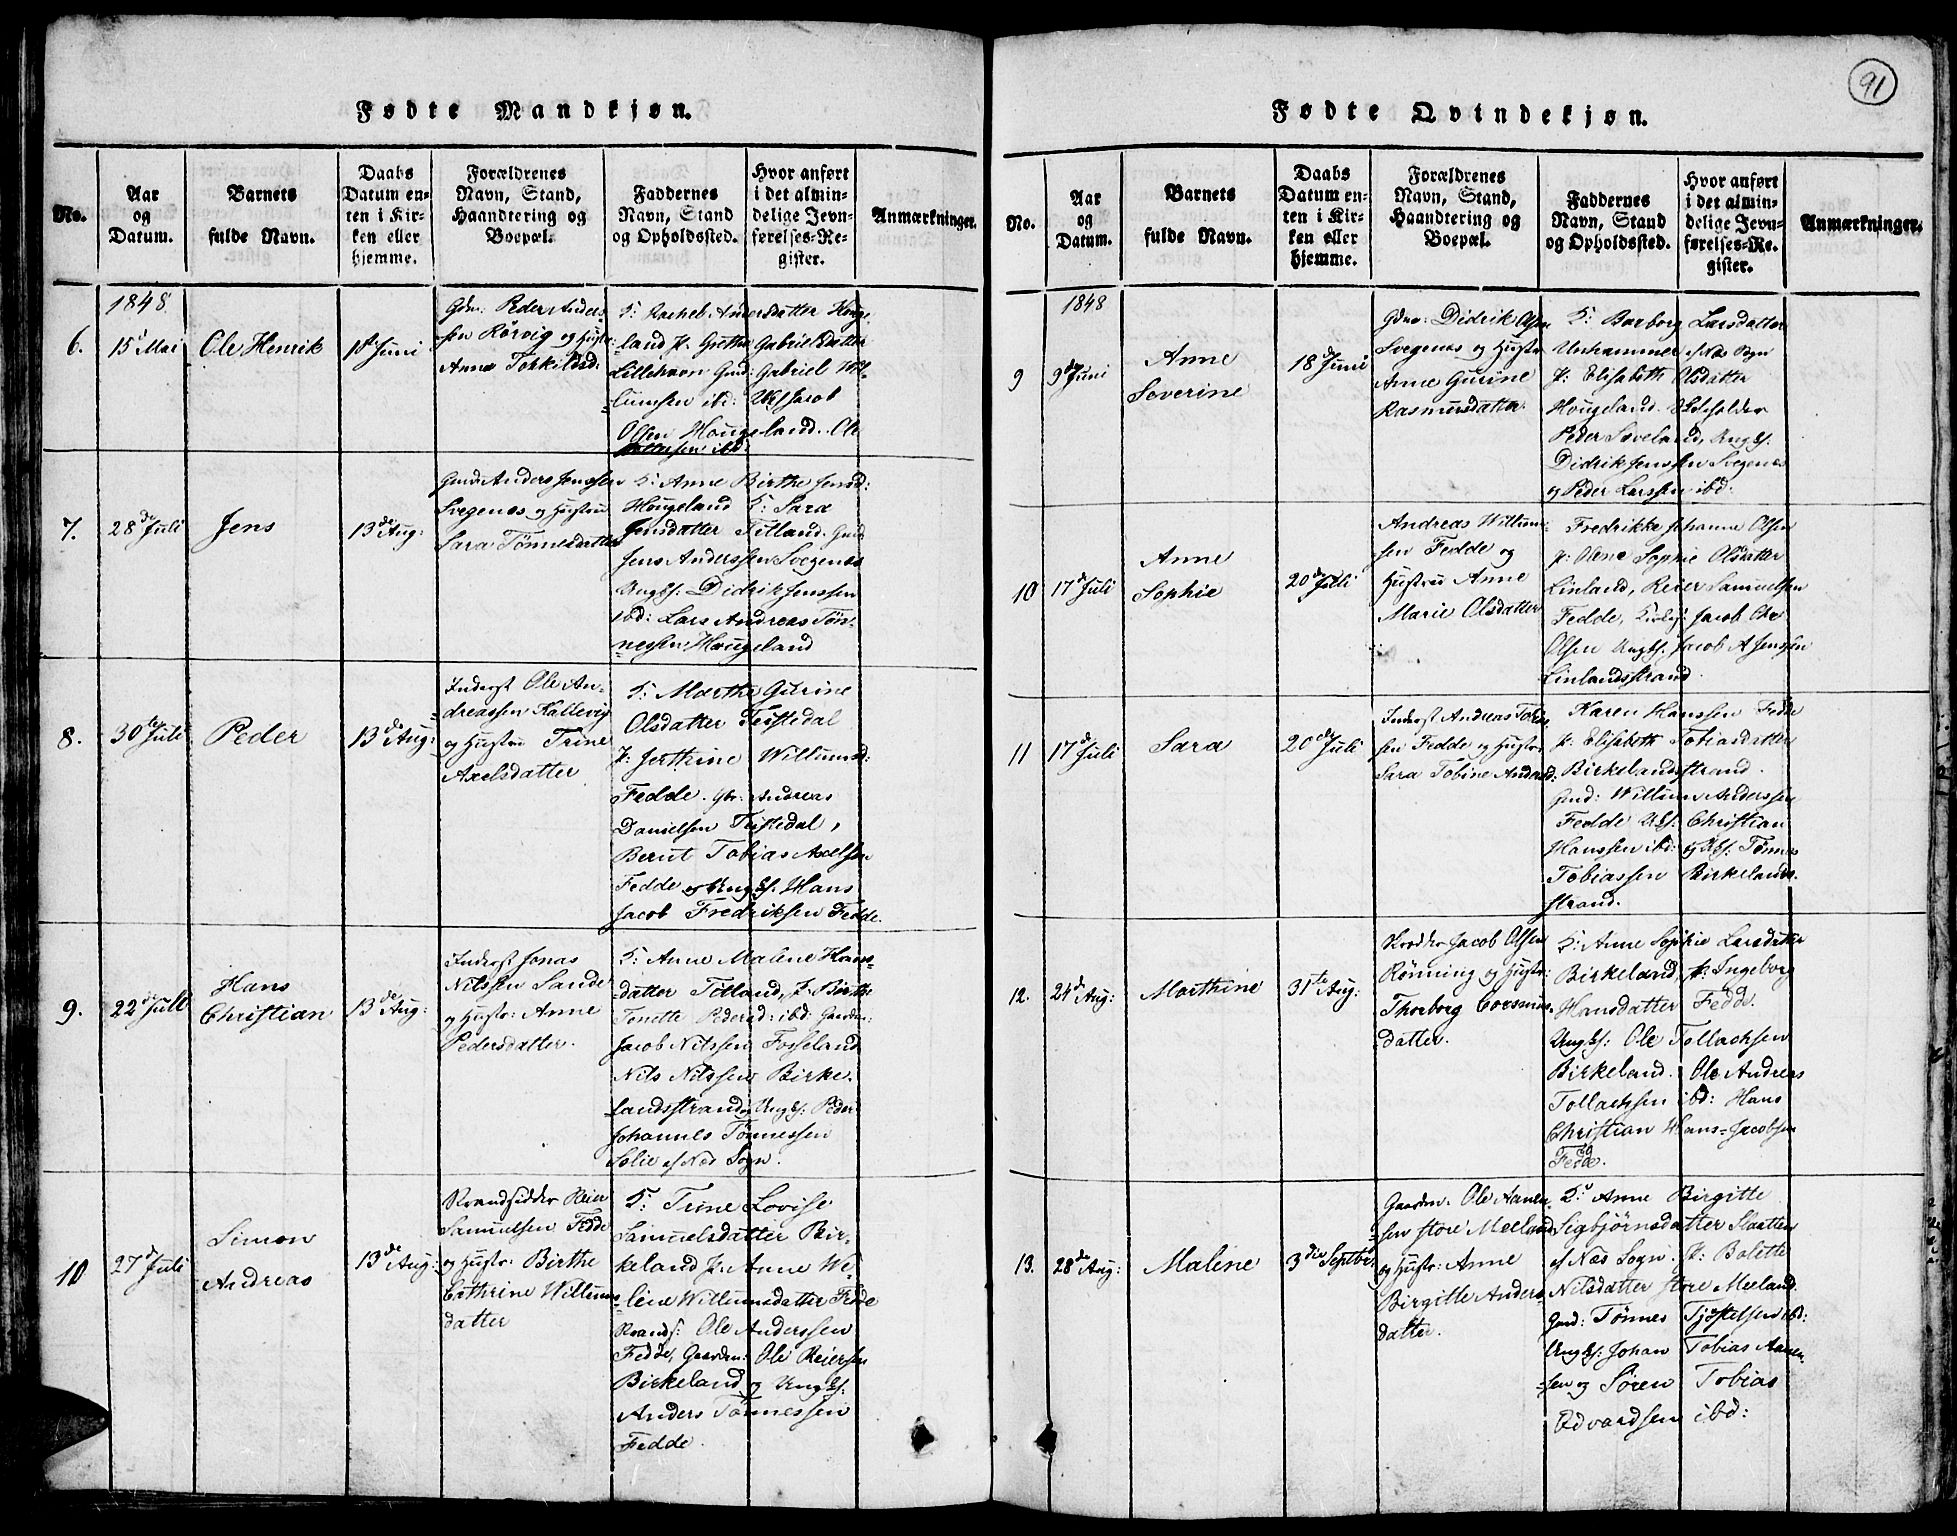 Fødte Mandkjøn.
No.
Aar
og
Datum.
Barnets
fulde Navn.
Daabs
Datum en-
ten i Kir-
ken eller
hjemme.
Forældrenes
Navn, Stand,
Haandtering og
Boepæl.
Faddernes
Navn, Stand
og Opholdssted.
Hvor anført
i det almin-
delige Jevn-
førelses-Re-
gister.
Anmærkninger.
1848
6.
15 Mai
Ole Henrik
1st Juni
Gdm: Peder Anders-
sen Rörvig og Hustr:
Anna Tokkildsd:
K: Rachel Andersdatter Houge-
land P. Grethe Gabrielsdatter
Lillehavn Gmd: Gabriel Wil-
lumsen ibd: Ugk Jacob
Olsen Hougeland. Ole
ibd:
7.
28de Juli
Jens
13de Aug:
Gmd: Anders Jenssen
Svegenæs og Hustru
Sara Tönnesdatter
K: Anne Birthe Jensd:
Hougeland K: Sara
Jensdatter Titland. Gmd
Jens Anderssen Svegenes
Ungk: Didrik Jenssen
ibd: Lars Andreas Tön-
nessen Hougeland
8.
30te Juli
Peder
13de Aug:
Inderst Ole An-
dreassen Kallevig
og Hustru Trine
Axelsdatter
K: Marthe Gurine
Olsdatter Teistedal
P: Jerthine Willumsd:
Fedde. Gbr: Andreas
Danielsen Teistedal,
Berut Tobias Axelsen
Fedde og Ungk. Hans
Jacob Fredriksen Fedde.
9.
22de Juli
Hans
Christian
13de Aug:
Inderst Jonas
Nilssen Sande
og Hustr: Anne
Pedersdatter.
K: Anne Malene Hans-
datter Titland, P. Birthe
Tonette Pedersd: ibd: Gaardm:
Jacob Nilssen Fosseland
Nils Nilssen Birke-
landsstrand og Ungk: Peder
Johannes Tönnessen
Solie af Næs Sogn.
10
27de Juli
Simon
Andreas
13de Aug:
Strandsidder Reier
Samuelsen Fedde
og Hustr: Birthe
Cathrine Willums-
datter
K: Trine Lovise
Samuelsdatter Bir-
keland P: Anne We-
lene Willumsdatter Fedde
Strands: Ole Anderssen
Fedde, Gaardm: Ole Reiersen
Birkeland og Ungk:
Anders Tönnessen
Fedde.
91
Fødte Qvindekjøn.
No.
Aar
og
Datum.
Barnets
fulde Navn.
Daabs
Datum en-
ten i Kir-
ken eller
hjemme.
Forældrenes
Navn, Stand,
Haandtering og
Boepæl.
Faddernes
Navn, Stand
og Opholdssted.
Hvor anført
i det almin-
delige Jevn-
førelses-Re-
gister.
Anmærkninger.
1848
9
9de Juni
Anne
Severine
18de Juni
Gdm: Didrik Olsen
Svegenæs og Hustr
Anne Gurine
Rasmusdatter.
K: Barborg Larsdatter
Unhammer af Næs Sogn
P: Elisabeth Olsdatter
Hougeland.
Peder Soveland, Ungk:
Didrik Jenssen Svegenæs
og Peder Larssen ibd.
10
17de Juli
Anne
Sophie
20de Juli
Andreas Willum-
sen Fedde og
Hustru Anne
Marie Olsdatter
Fredrikke Johanne Olsen
P: Olene Sophie Olsdatter
Linland, Reier Samuelsen
Fedde, Jacob Chr
Olsen Ungk: Jacob A Jenssen
Linlandsstrand
11
17de Juli
Sara
20de Juli
Inderst Andreas Tobia-
sen Fedde og Hustr
Sara Tobine Andersd:
Karen Hanssen Fedde
P: Elisabeth Tobiasdatter
Birkelandsstrand.
Gmd: Willum Anderssen
Fedde Uk: Christian
Hanssen ibd: og Uk: Tönnes
Tobiassen Birkelands-
strand.
12.
24de Aug:
Marthine
31te Aug:
Skrædder Jacob Olsen
Rönning og Hustr:
Thorborg Corsmus-
datter.
K: Anne Sophie Larsdatter
Birkeland, P: Ingeborg
Hansdatter Fedde.
Ungk: Ole Tollachsen
Birkeland. Ole Andreas
Tollachsen ibd: Hans
Christian Hans-Jacobsen
Fedde.
13.
28de Aug:
Malene
3die Septbr
Gaardm. Ole Aanen-
sen store Meeland
og Hustr: Anne
Birgitte Anders-
datter.
K: Anne Birgitte
Sigbjörnsdatter Slaatten
af Næs Sogn. P: Bolette
Nilsdatter store Meeland.
Gmd: Tönnes Tjöstelsen ibd:
Ungk: Johan Tobias Aanen-
sen og Sören Tobias
Edvardsen ibd: